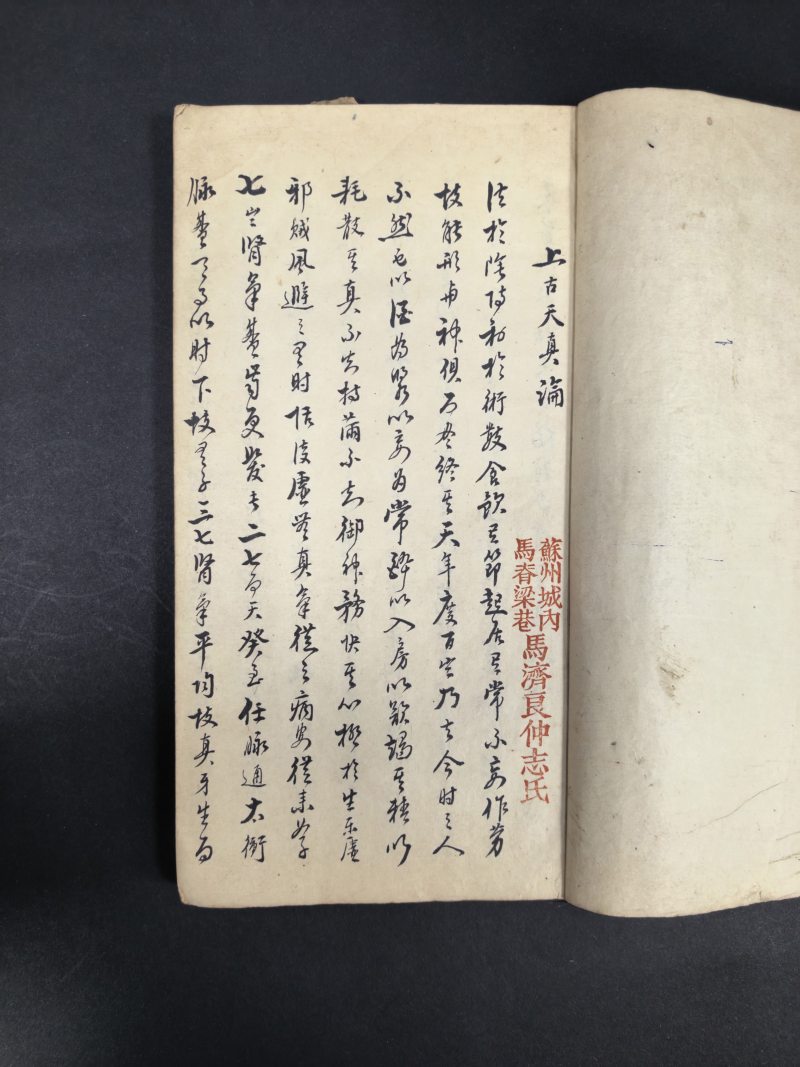 上古天真論
蘇州城內
馬脊梁巷
馬濟良仲志氏
法於陰陽和於術數食飲有節起居有常不妄作勞
故能形與神俱而盡終其天年度百歲乃去今時之人
不然也以酒為漿以妄為常醉以入房以欲竭其精以
耗散其真不知持滿不知御神務快其心極於生樂虛
邪賊風避之有時恬淡虛無真氣從之病安從來女子
七歲腎氣盛齒更髮長二七而天癸至任脈通太衝
脈盛月事以時下故有子三七腎氣平均故真牙生而